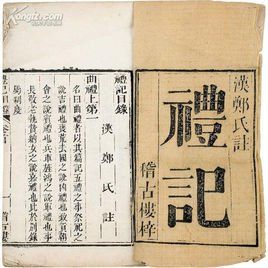 漢鄭氏註
禮記
稽古樓梓
禮記目錄
漢 鄭 氏 註
曲禮上第一
名曰曲禮者以其篇記五禮之事祭祀之
說吉禮也喪荒去國之說凶禮也致貢朝
會之說賓禮也兵車旌鴻之說軍禮也事
長敬老執贄納女之說嘉禮也此於別錄
屬制度